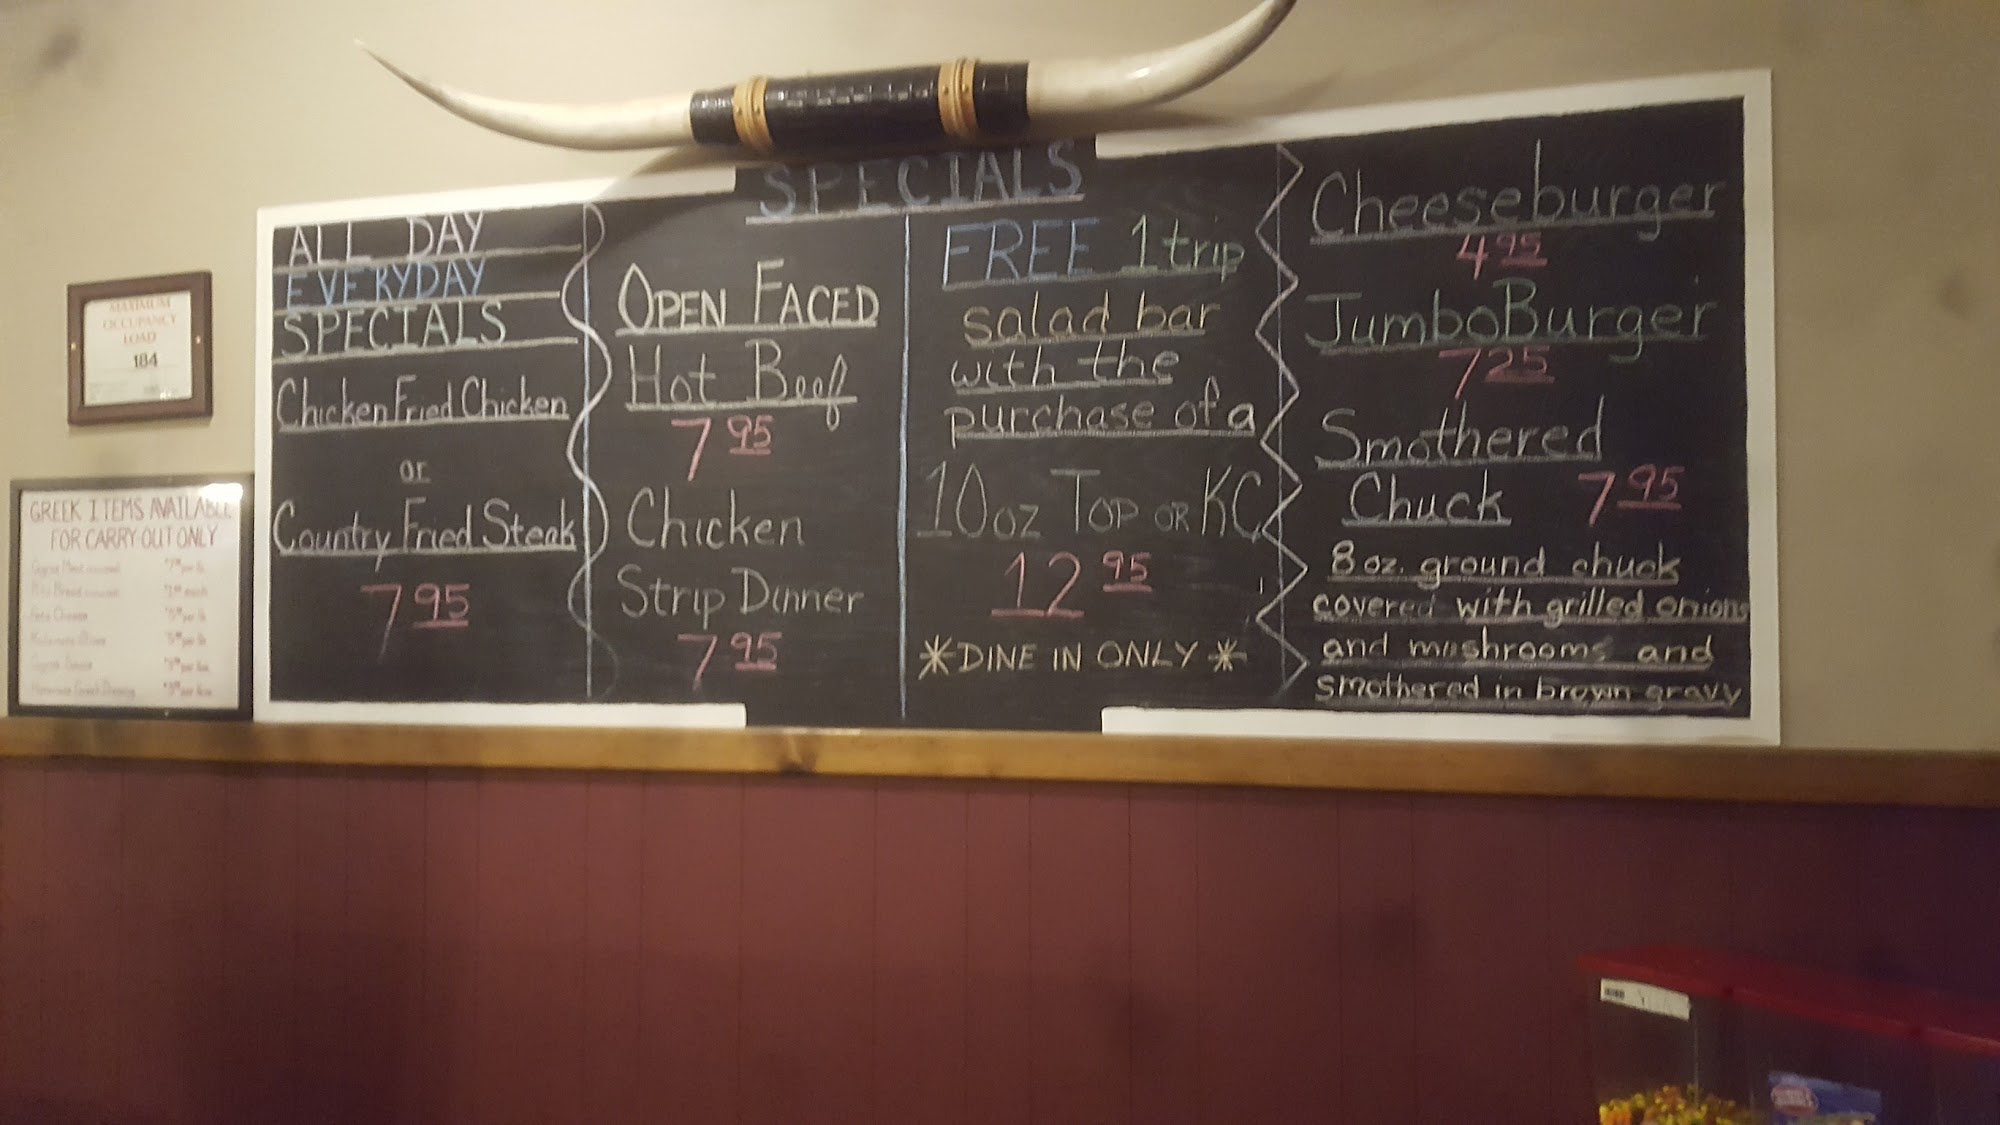 MAXIMUM
OCCUPANCY
LOAD
184
GREEK ITEMS AVAILABLE
FOR CARRY-OUT ONLY
SPECIALS
ALL DAY
EVERYDAY
SPECIALS
Chicken Fried Chicken
or
Country Fried Steak
7 95
OPEN FACED
HOT BEEF
7 95
CHICKEN
STRIP DINNER
7 95
FREE 1 trip
salad bar
with the
purchase of a
10oz TOP OR KC
12 95
*DINE IN ONLY*
Cheeseburger
4 95
JumboBurger
7 25
Smothered
Chuck 7 95
8 oz. ground chuck
covered with grilled onions
and mushrooms and
smothered in brown gravy